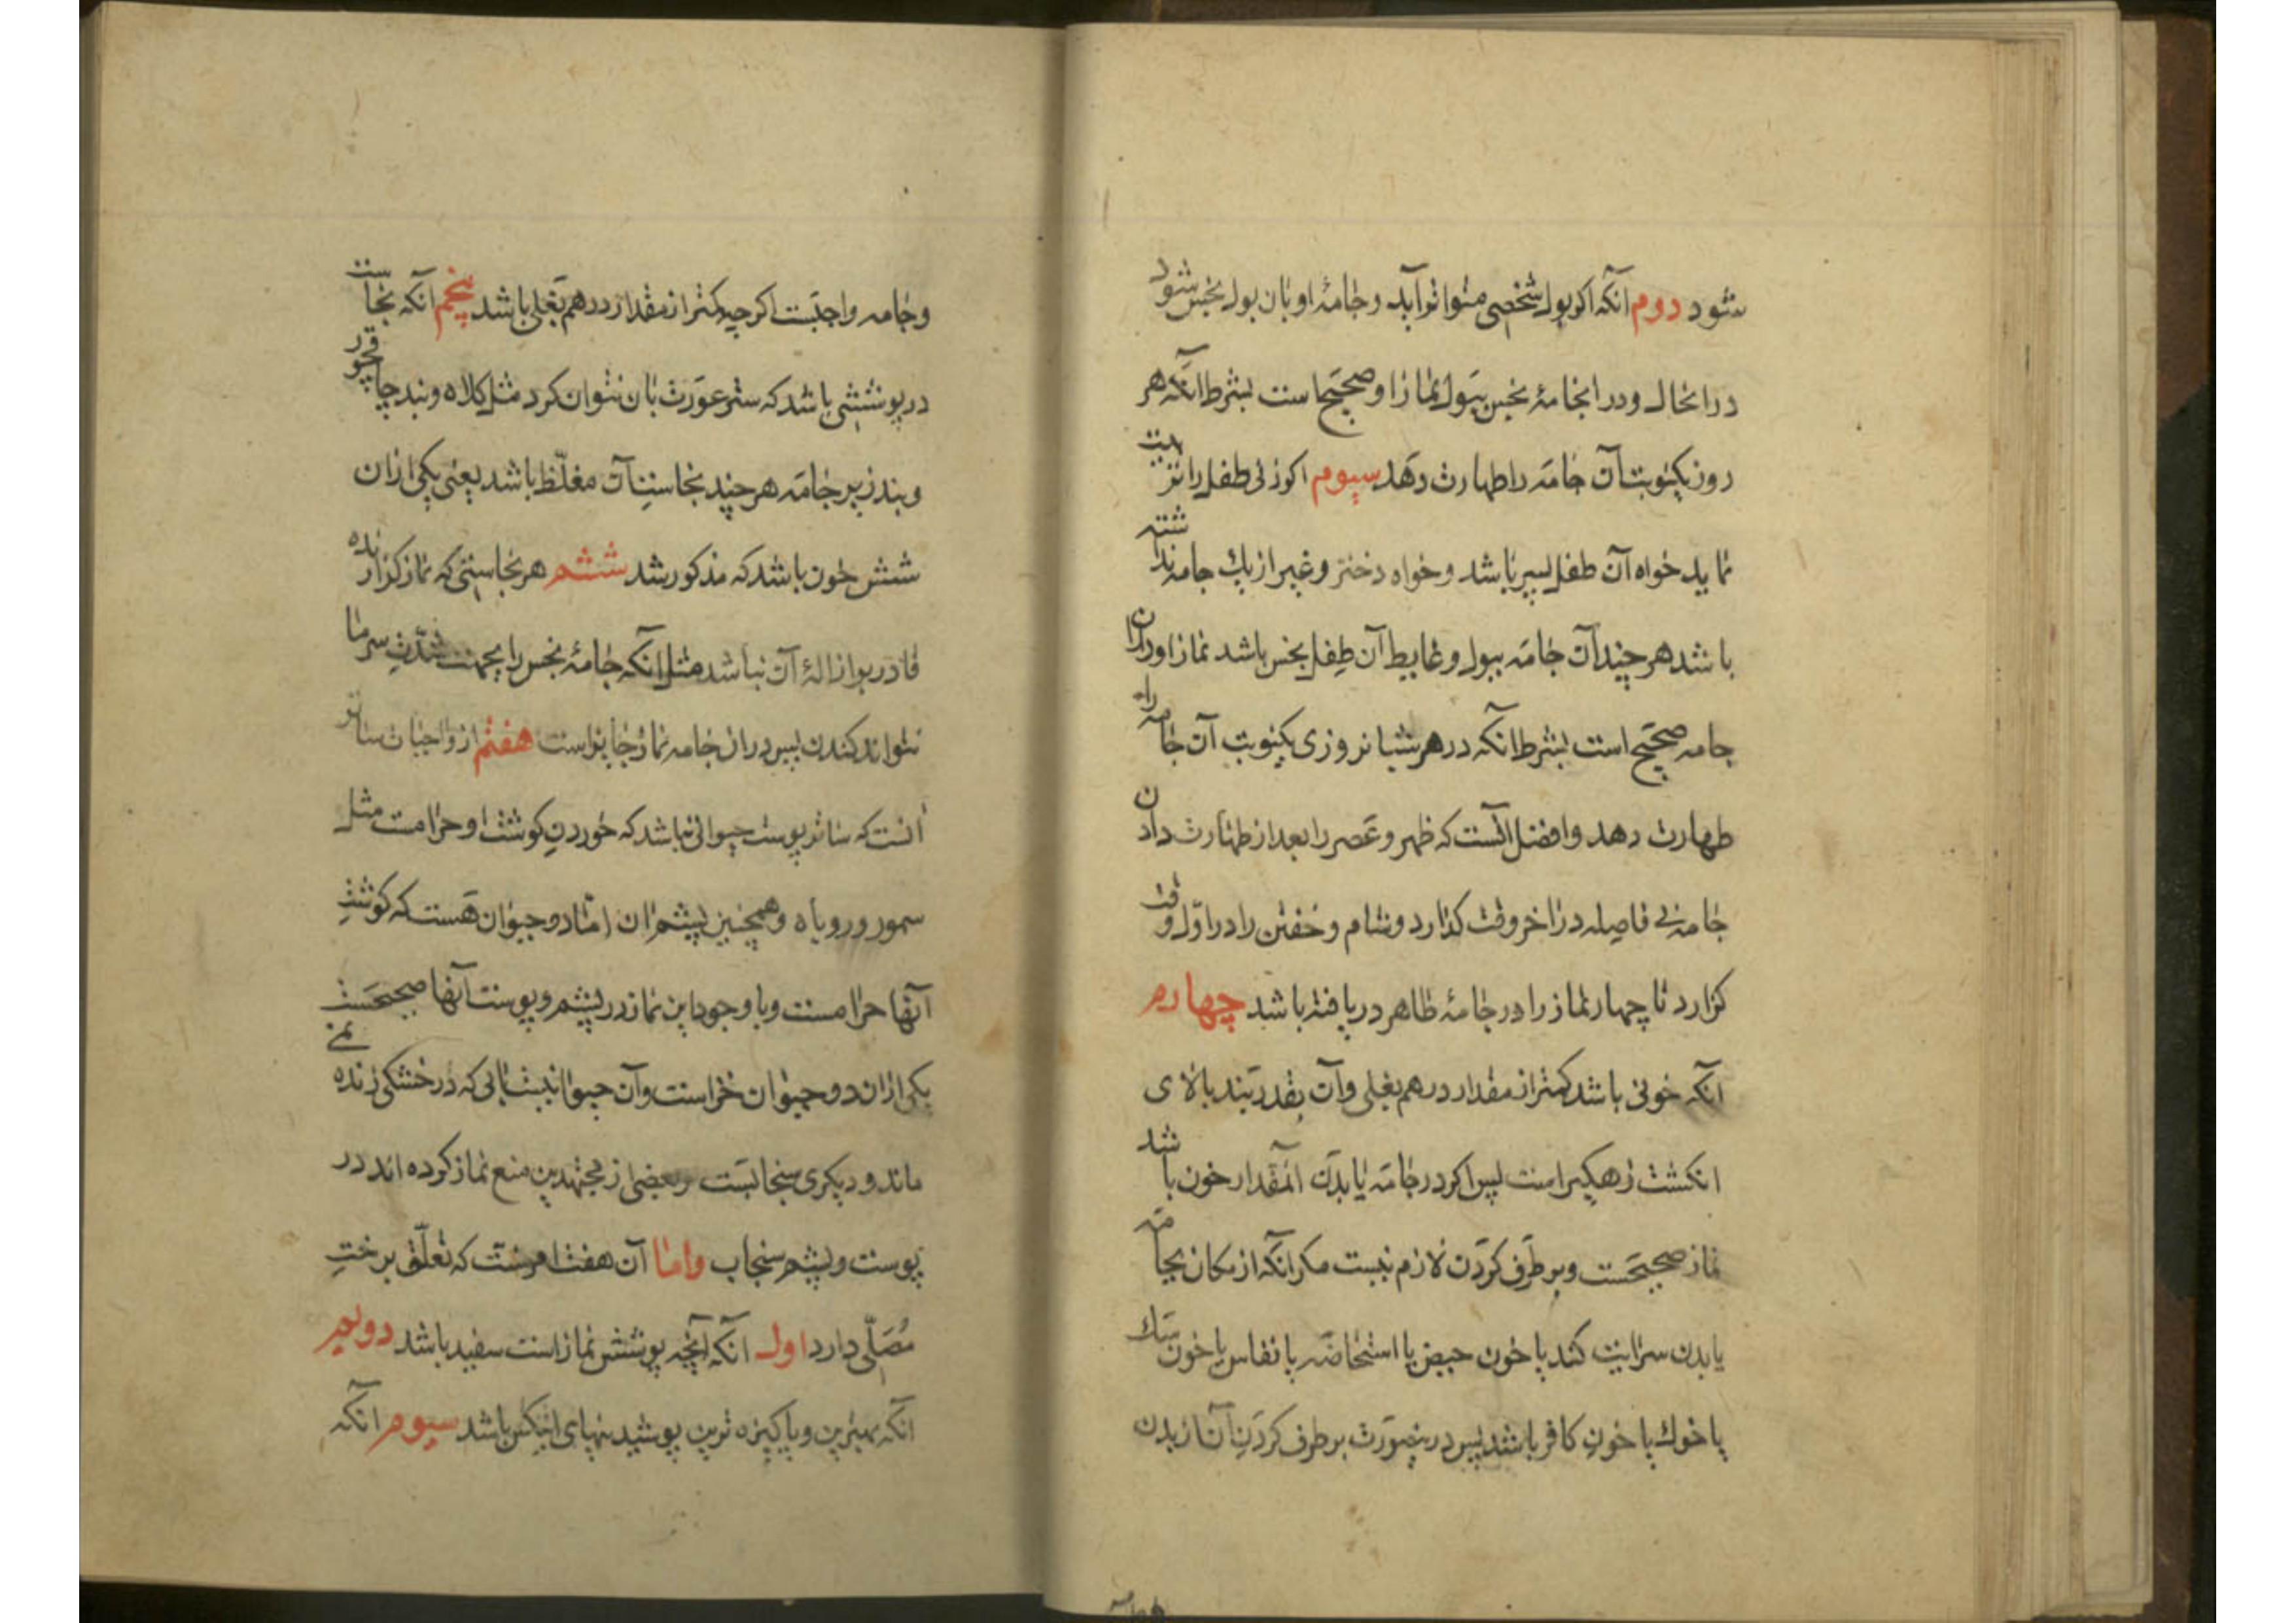 شود دوم آنکه اکر بول شخصی متواتر آید و جامهٔ او بان بول نجس شود
درانحال و در انجامهٔ نجس ببول نماز او صحیح است بشرط آنکه هر
روز یکنوبت آن جامه را طهارت دهد سیوم اکر زنی طفل را تربیت
نماید خواه آن طفل پسر باشد و خواه دختر و غیر از یک جامه نداشته
باشد هر چند آن جامه ببول و غایط آن طفل نجس باشد نماز او دران
جامه صحیح است بشرط آنکه در هر شبانروزی یکنوبت آن جامه را
طهارت دهد و افضل آنست که ظهر و عصر را بعد از طهارت دادن
جامه بی فاصله در اخر وقت کذارد و شام و خفتن را در اول وقت
کزارد تا چهار نماز را در جامهٔ طاهر دریافته باشد چهارم
آنکه خونی باشد کمتر از مقدار درهم بغلی و آن بقدر بند بالای
انکشت زهکیر است پس اکر در جامه یا بدن آنمقدار خون باشد
نماز صحیحست و بر طرف کردن لازم نیست مکر آنکه از مکان بجامه
یا بدن سرایت کند یا خون حیض یا استحاضه یا نفاس یا خون سک
یا خوک یا خون کافر باشد پس درینصورت بر طرف کردن آن از بدن
و جامه واجبست اکر چه کمتر از مقدار درهم بغلی باشد پنجم آنکه نجاست
در پوششی باشد که ستر عورت بان نتوان کرد مثل کلاه و بند چاقچور
و بند زیر جامه هر چند نجاست آن مغلظ باشد یعنی یکی ازان
شش خون باشد که مذکور شد ششم هر نجاستی که نماز کزارنده
قادر بر ازالهٔ آن نباشد مثل آنکه جامهٔ نجس را بجهت شدت سرما
نتواند کندن پس دران جامه نماز جایز است هفتم از واجبات ساتر
آنست که ساتر پوست حیوانی نباشد که خوردن کوشت او حرامست مثل
سمور و روباه و همچنین پشم ان اما دو حیوان هست که کوشت
آنها حرامست و با وجود این نماز در پشم و پوست آنها صحیحست
یکی ازان دو حیوان خز است و آن حیوانیست آبی که در خشکی زنده نمی
ماند و دیکری سنجابست و بعضی از مجتهدین منع نماز کرده اند در
پوست و پشم سنجاب واما آن هفت امر سنت که تعلق برخت
مصلی دارد اول آنکه آنچه پوشش نماز است سفید باشد دویم
آنکه بهترین و پاکیزه ترین پوشیدنیهای اینکس باشد سیوم آنکه